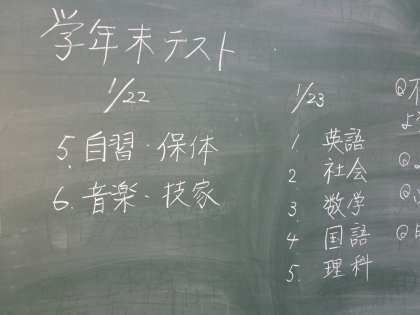 学年末テスト
1/22
5. 自習・保体
6. 音楽・技家
1/23
1. 英語
2. 社会
3. 数学
4 国語
5. 理科